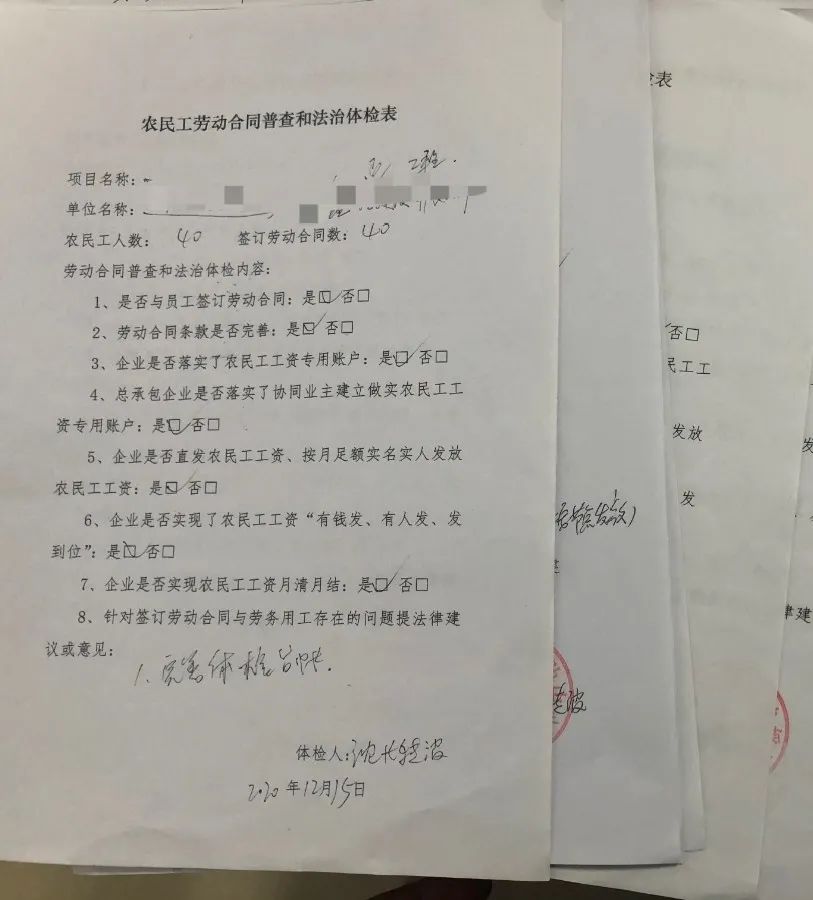 农民工劳动合同普查和法治体检表
项目名称： 工程.
单位名称：
农民工人数： 40 签订劳动合同数： 40
劳动合同普查和法治体检内容：
1、是否与员工签订劳动合同：是☑ 否□
2、劳动合同条款是否完善：是☑ 否□
3、企业是否落实了农民工工资专用账户：是☑ 否□
4、总承包企业是否落实了协同业主建立做实农民工工
资专用账户：是☑ 否□
5、企业是否直发农民工工资、按月足额实名实人发放
农民工工资：是☑ 否□
6、企业是否实现了农民工工资“有钱发、有人发、发
到位”：是☑ 否□
7、企业是否实现农民工工资月清月结：是☑ 否□
8、针对签订劳动合同与劳务用工存在的问题提法律建
议或意见：
1、完善体检台帐.
体检人：
2020年12月15日
表
否□
民工工
发放
发
发
律建